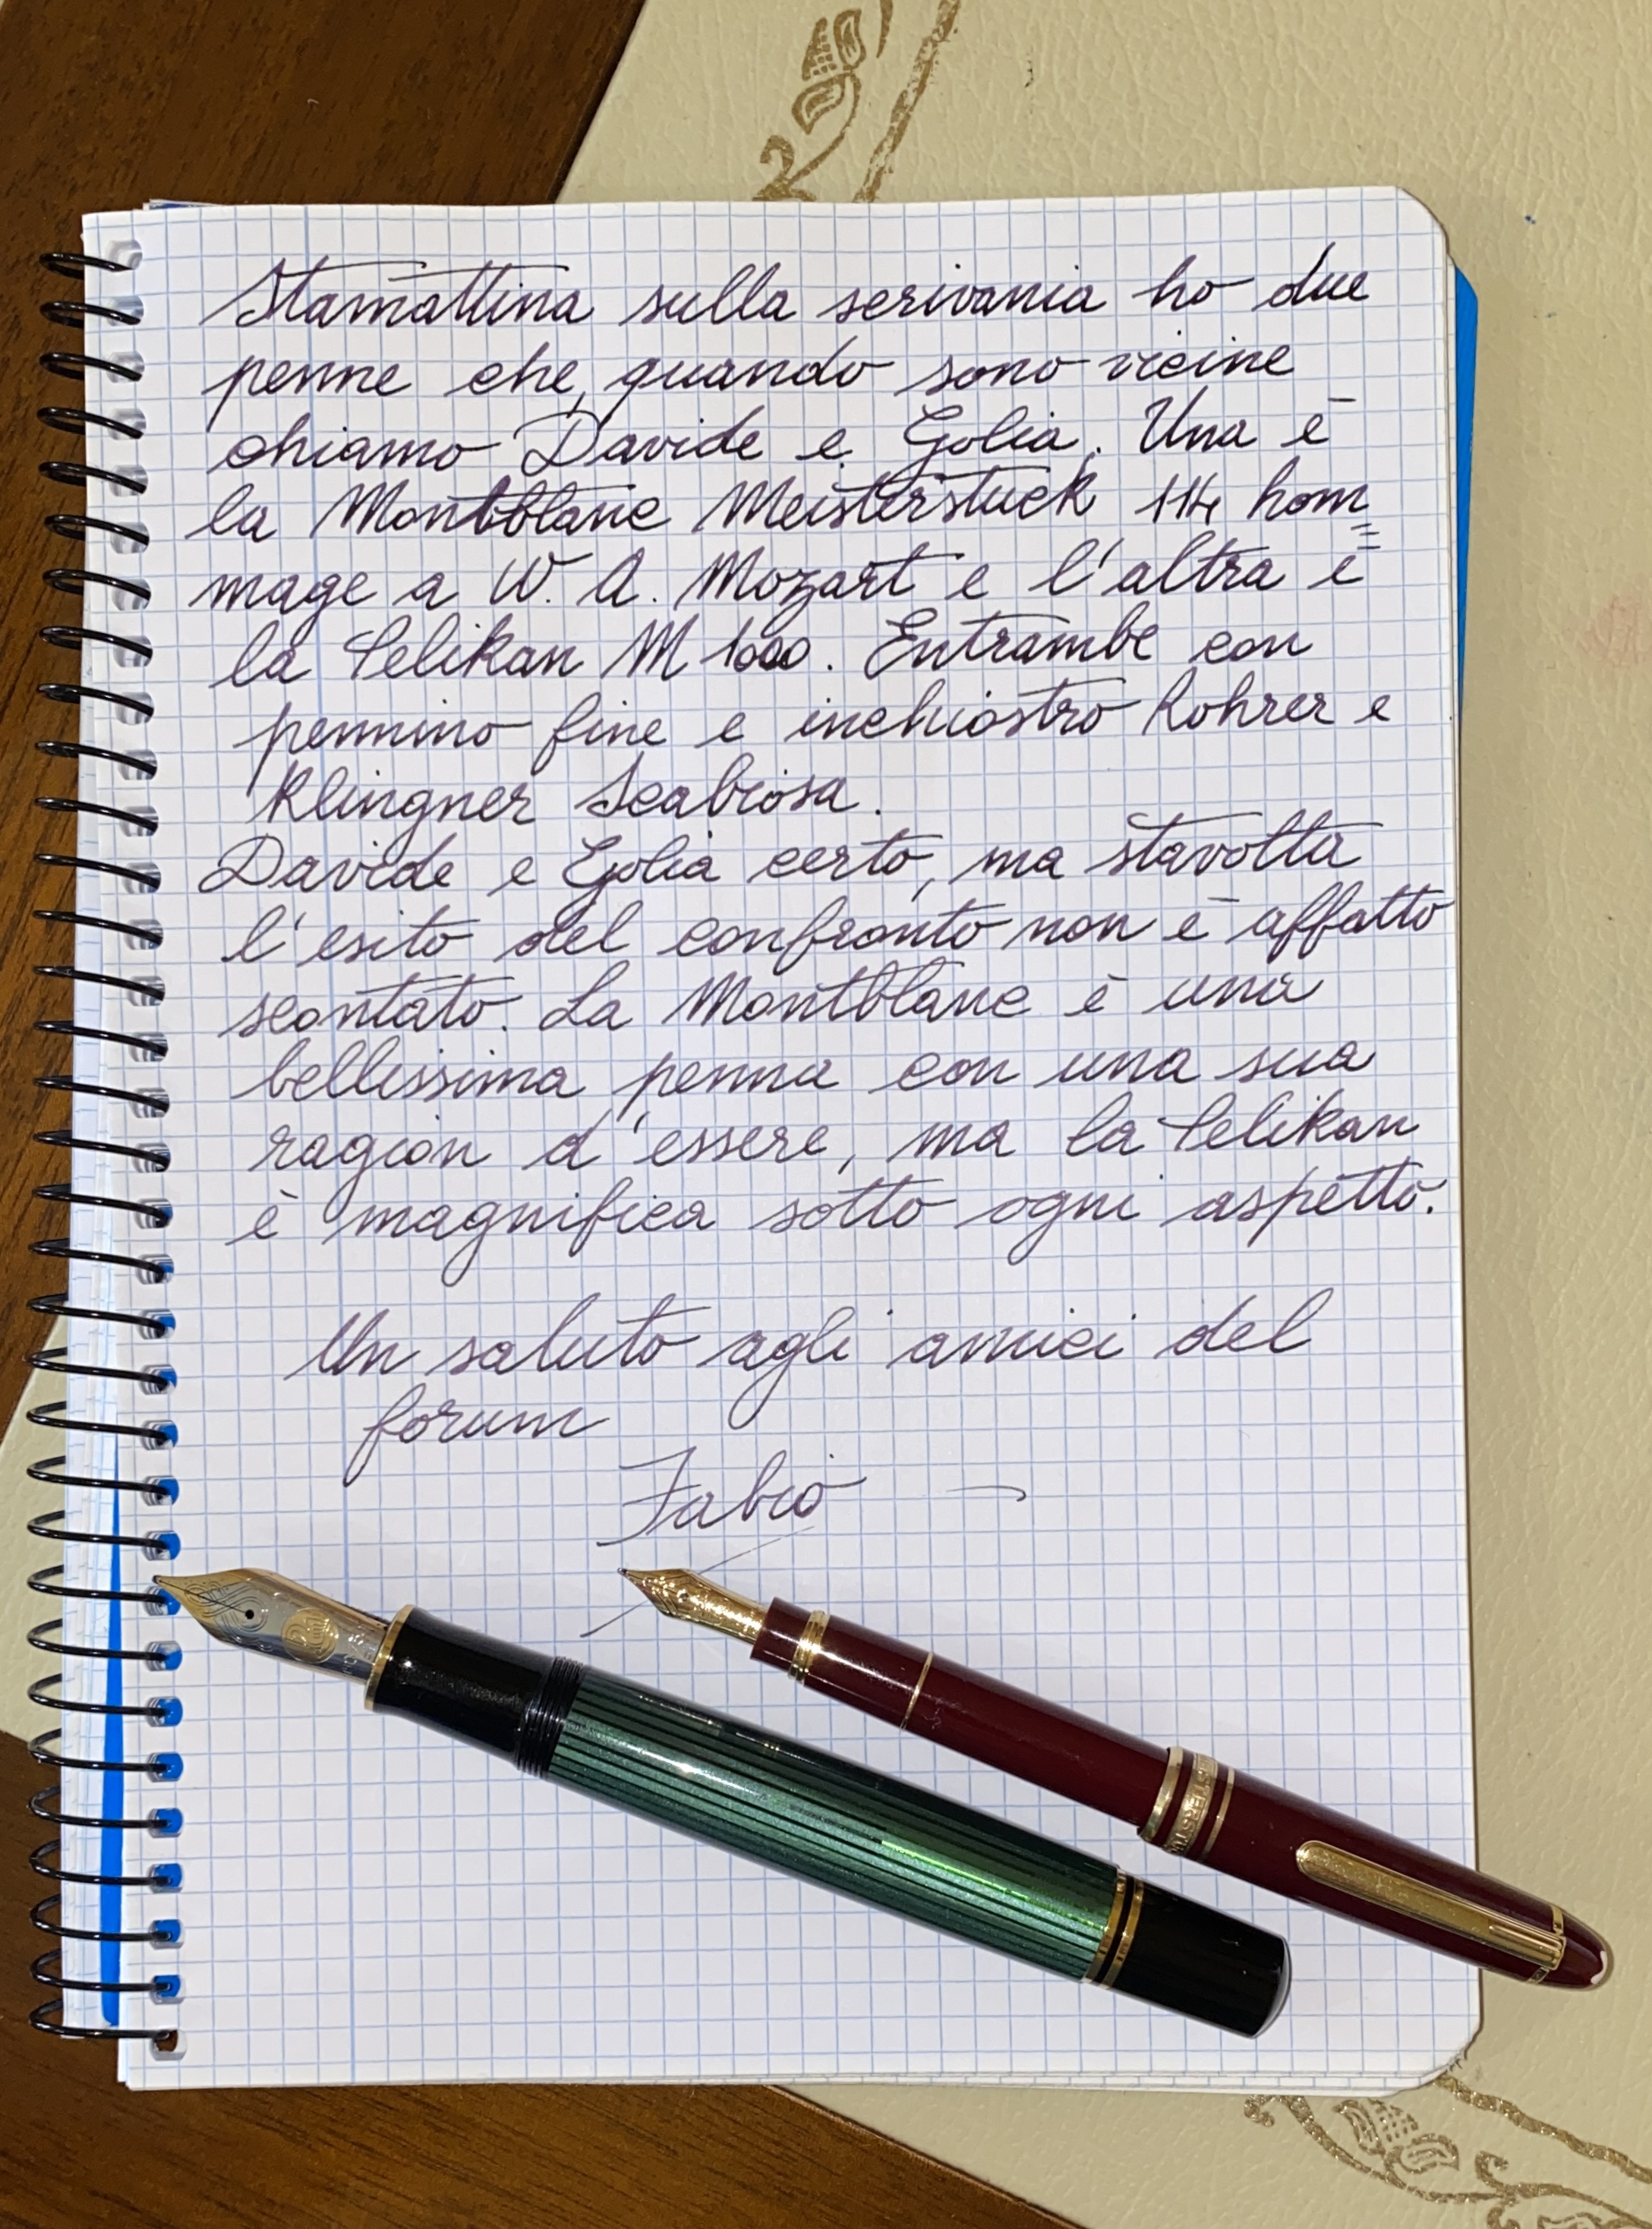 Stamattina sulla scrivania ho due
penne che, quando sono vicine
chiamo Davide e Golia. Una è
la Montblanc Meisterstuck 114 hom=
mage a W. A. Mozart e l'altra è
la Pelikan M 1000. Entrambe con
pennino fine e inchiostro Rohrer e
Klingner Scabiosa.
Davide e Golia certo, ma stavolta
l'esito del confronto non è affatto
scontato. La Montblanc è una
bellissima penna con una sua
ragion d'essere, ma la Pelikan
è magnifica sotto ogni aspetto.
Un saluto agli amici del
forum
Fabio